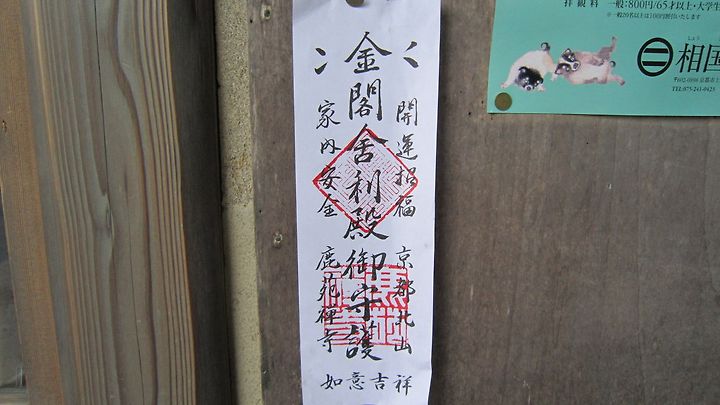 金閣舎利殿御守護
開運招福
家内安全
京都北山
鹿苑禅寺
如意吉祥
拝観料 一般:800円/65才以上・大学生
※一般20名以上は100円割引いたします
相国
〒602-0898 京都市上
TEL:075-241-0423